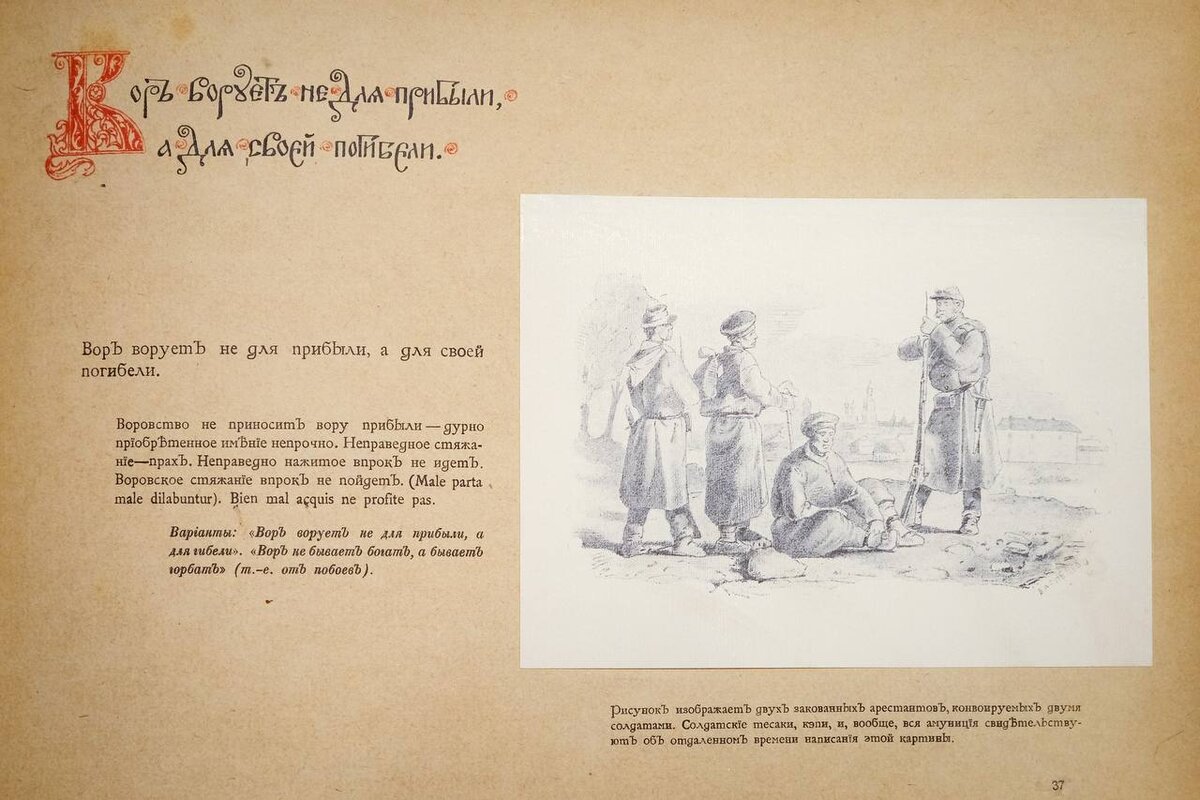 Воръ воруетъ не для прибыли,
а для своей погибели.
Воръ воруетъ не для прибыли, а для своей
погибели.
Воровство не приноситъ вору прибыли — дурно
пріобрѣтенное имѣніе непрочно. Неправедное стяжа-
ніе—прахъ. Неправедно нажитое впрокъ не идетъ.
Воровское стяжаніе впрокъ не пойдетъ. (Male parta
male dilabuntur). Bien mal acquis ne profite pas.
Варіанты: «Воръ воруетъ не для прибыли, а
для гибели». «Воръ не бываетъ богатъ, а бываетъ
горбатъ» (т.-е. отъ побоевъ).
Рисунокъ изображаетъ двухъ закованныхъ арестантовъ, конвоируемыхъ двумя
солдатами. Солдатскіе тесаки, кэпи, и, вообще, вся амуниція свидѣтельству-
ютъ объ отдаленномъ времени написанія этой картины.
37